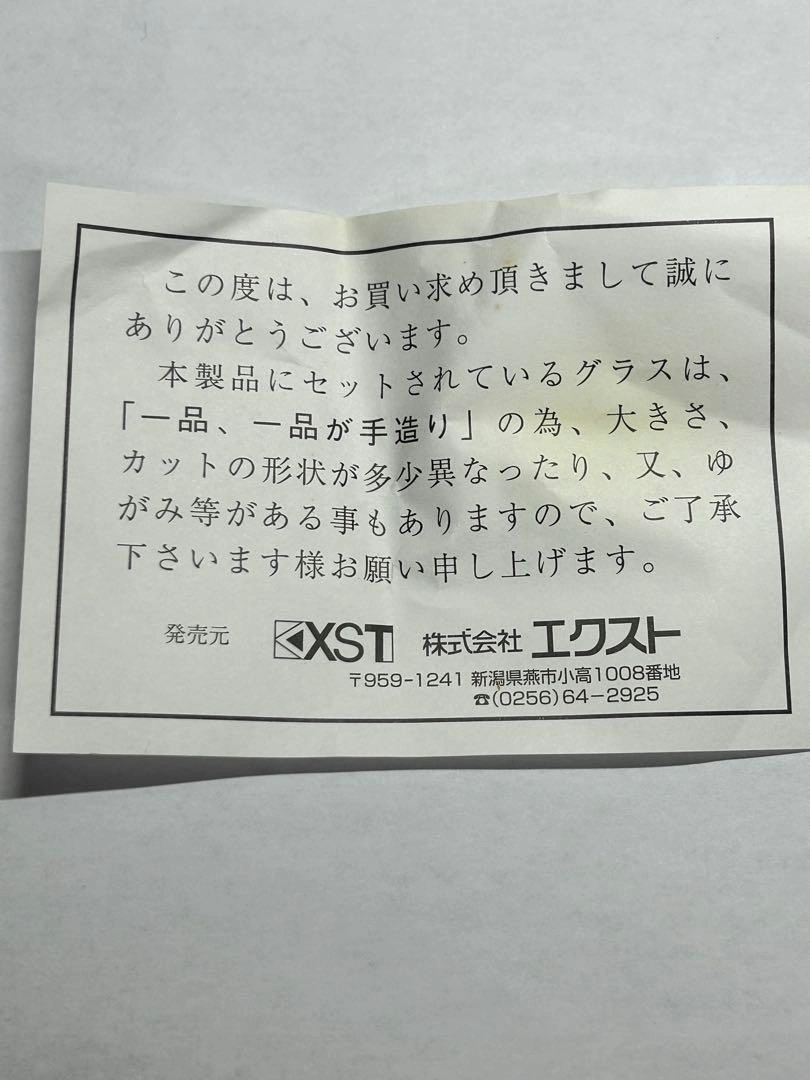 この度は、お買い求め頂きまして誠に
ありがとうございます。
本製品にセットされているグラスは、
「一品、一品が手造り」の為、大きさ、
カットの形状が多少異なったり、又、ゆ
がみ等がある事もありますので、ご了承
下さいます様お願い申し上げます。
発売元 EXST 株式会社 エクスト
〒959-1241 新潟県燕市小高1008番地
☎(0256)64-2925